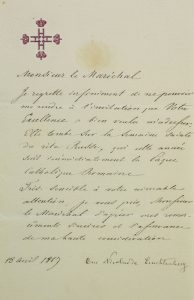 Monsieur le Maréchal
Je regrette infiniment de ne pouvoir
me rendre à l'invitation que Votre
Excellence a bien voulu m'adresser.
Elle tombe sur la Semaine Sainte
du rite Russe, qui cette année
suit immédiatement la Pâque
Catholique Romaine.
Très sensible à votre aimable
attention je vous prie, Monsieur
le Maréchal d'agréer mes sen-
timents sincères et l'assurance
de ma haute considération.
18 Avril 1867 Nicolas de Leuchtenberg